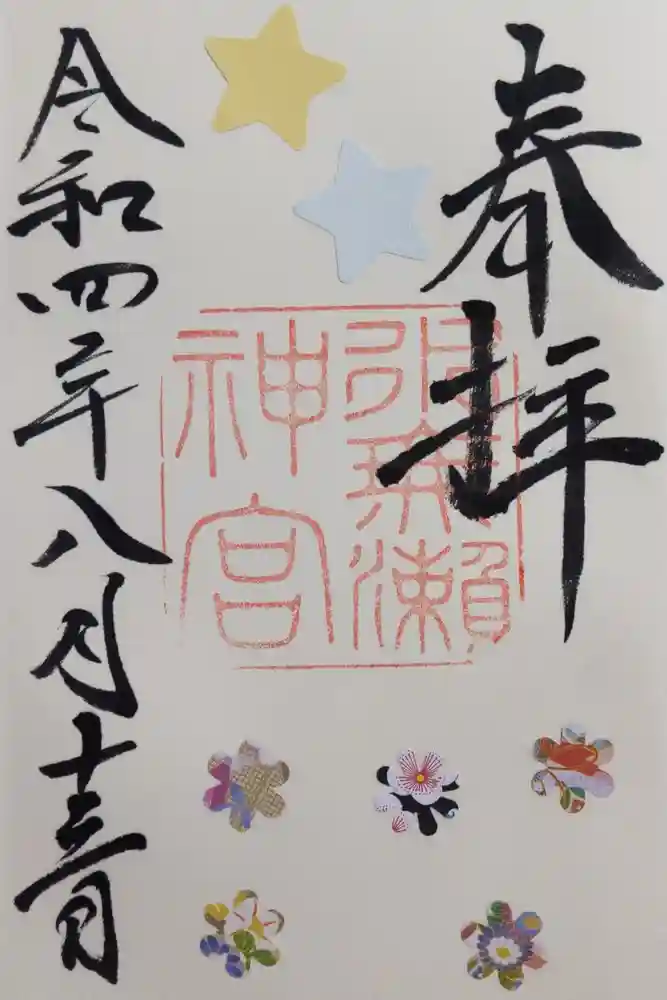 奉拝
水無瀬
神宮
令和四年八月十三日